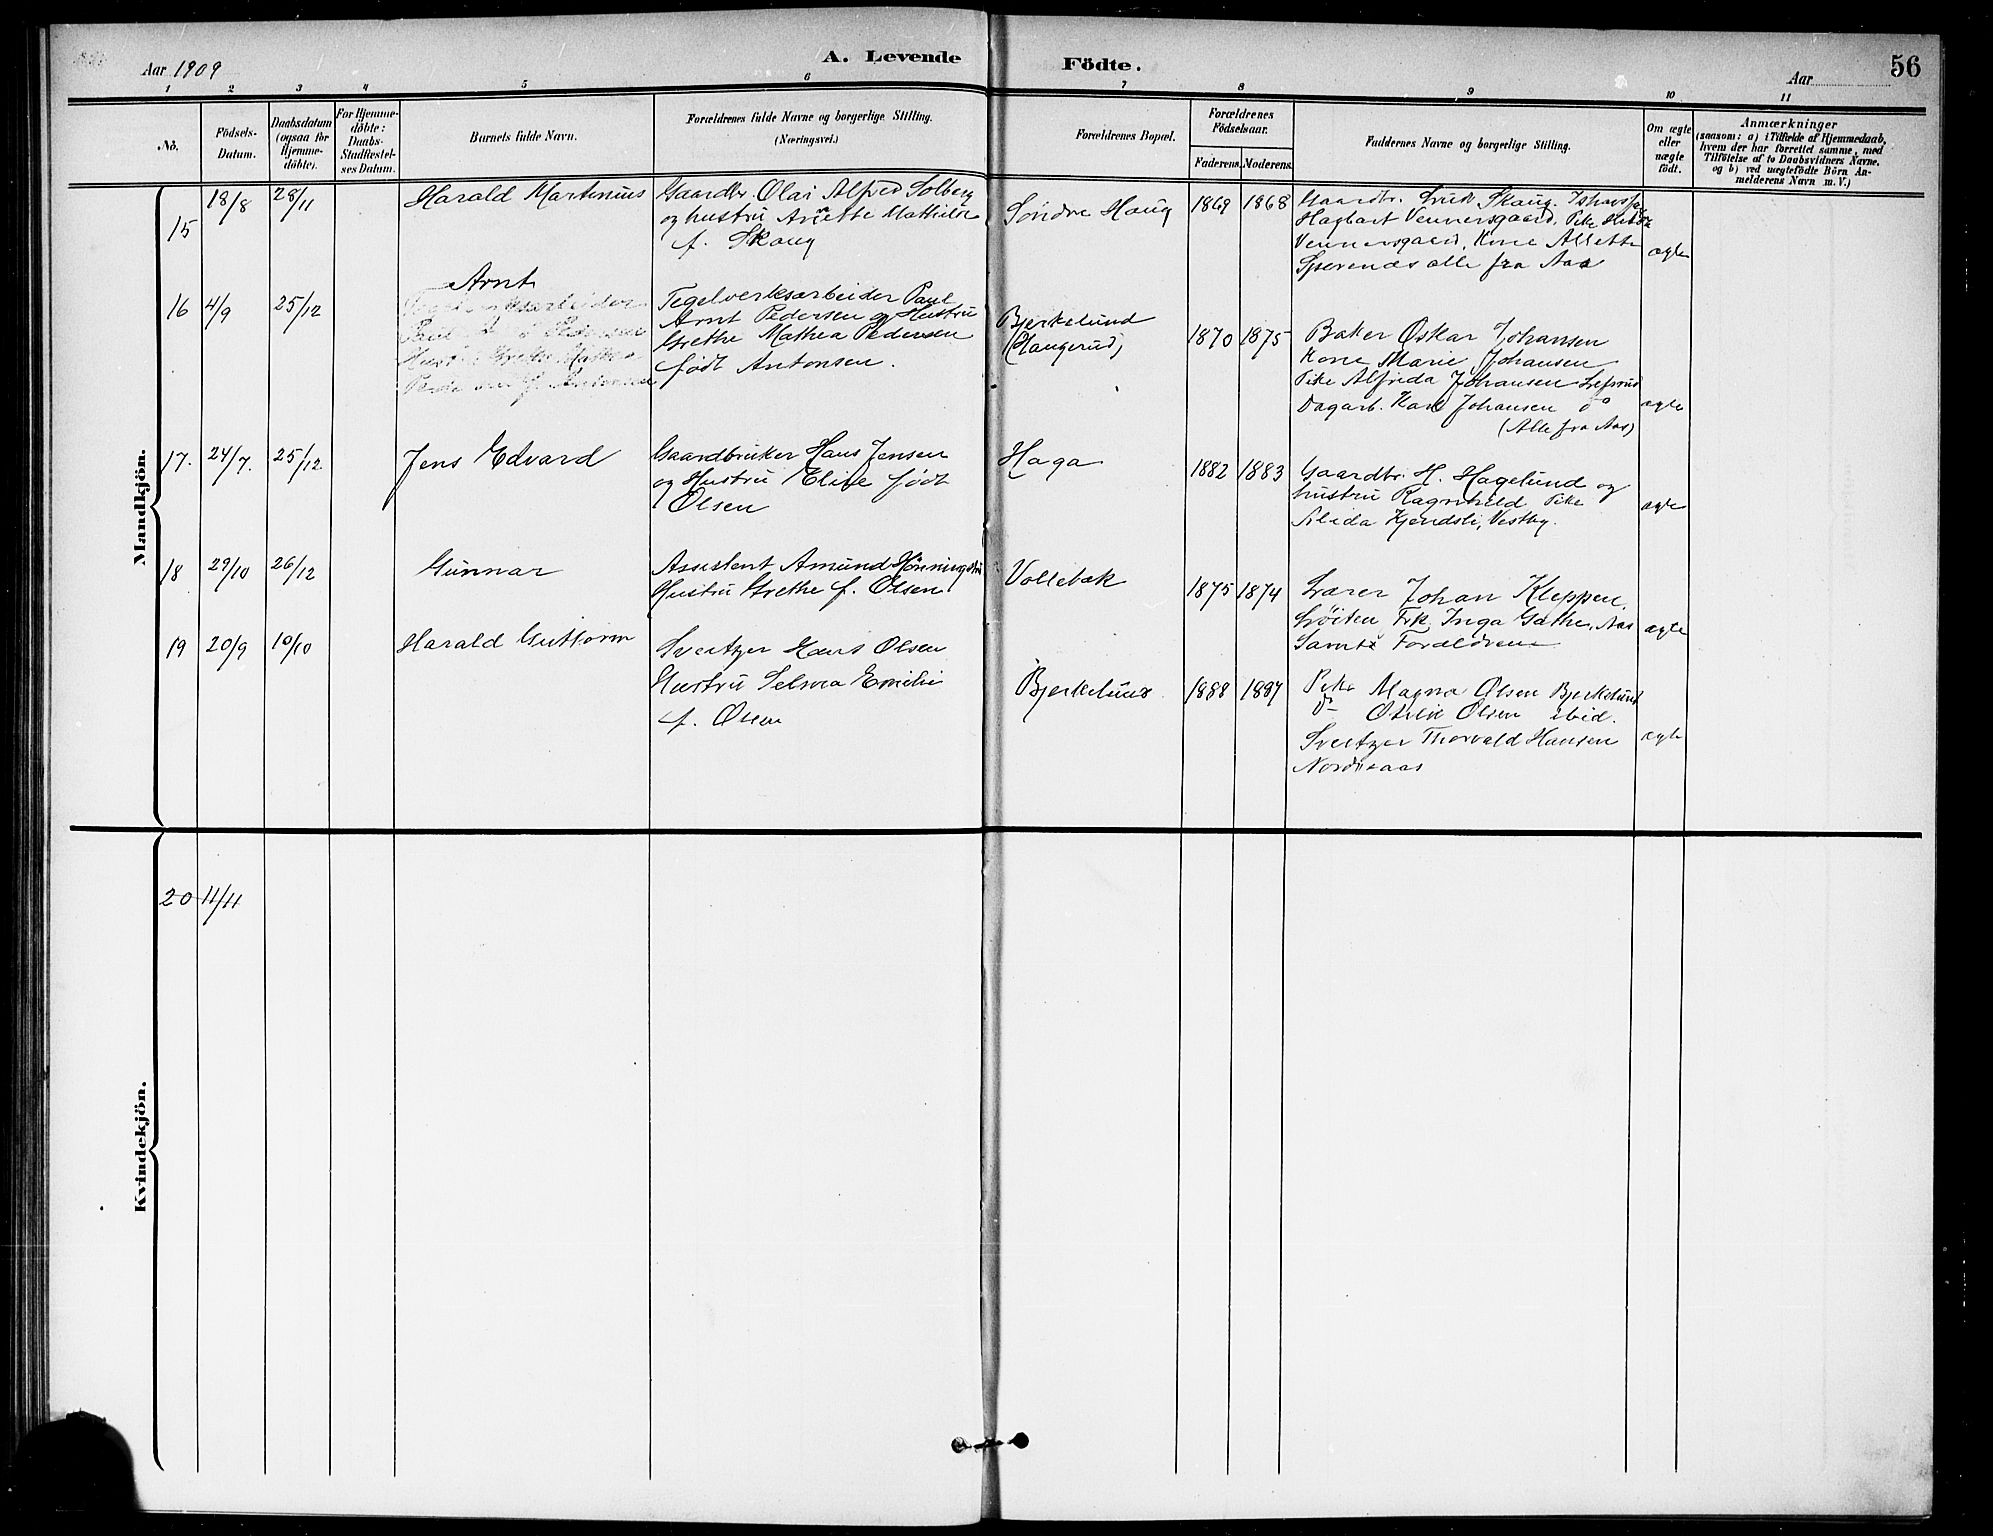 Aar 1909
A. Levende Födte.
Aar
56
1 2 3 4 5 6 7 8 9 10 11
No.
Födsels-
Datum.
Daabsdatum
(ogsaa for
Hjemme-
döbte).
For Hjemme-
döbte:
Daabs-
Stadfæstel-
ses Datum.
Barnets fulde Navn.
Forældrenes fulde Navne og borgerlige Stilling.
(Næringsvei.)
Forældrenes Bopæl.
Forældrenes
Födselsaar.
Faderens. Moderens.
Faddernes Navne og borgerlige Stilling.
Om ægte
eller
uægte
födt.
Anmærkninger
(saasom: a) i Tilfælde af Hjemmedaab,
hvem der har forrettet samme, med
Tilföielse af to Daabsvidners Navne,
og b) ved uægtefödte Börn An-
melderens Navn m. V.)
Mandkjön.
15
18/8
28/11
Harald Martinius
Gaardbr. Olai Alfred Solberg
og hustru Anette Mathilde
f. Skaug
Søndre Haug
1869
1868
Gaardbr. Skaug.
Hagbart Vennersgaard, Pike
Vennersgaard, Kone Allette
alle fra Aas
ægte
16
4/9
25/12
Arnt
Tegelverksarbeider Paul
Arnt Pedersen og Hustru
Grethe Mathea Pedersen
født Antonsen.
Bjerkelund
(Haugerud)
1870
1875
Baker Oskar Johansen
Kone Marie Johansen
Pike Alfrida Johansen
Dagarb. Karl Johansen do
(Alle fra Aas)
ægte
17.
24/7.
25/12
Jens Edvard
Gaardbruker Hans Jensen
og Hustru Elise født
Olsen
Haga
1882
1883
Gaardbr. H. Hagelund og
hustru Ragnhild Pike
Alida Kjendsli, Vestby.
ægte
18
29/10
26/12
Gunnar
Assistent Amund
Hustru Grethe f. Olsen
Vollebæk
1875
1874
Lærer Johan Kleppen,
Løiten Frk. Inga Gathe, Aas
Samt Forældrene
ægte
19
20/9
10/10
Harald Guttorm
Sveitzer Hans Olsen
Hustru Selma Emilie
f. Olsen
Bjerkelund
1888
1887
Pike Magna Olsen Bjerkelund
do Otilie Olsen ibid.
Sveitzer Thorvald Hansen
Nordraaas
ægte
Kvindekjön.
20
11/11